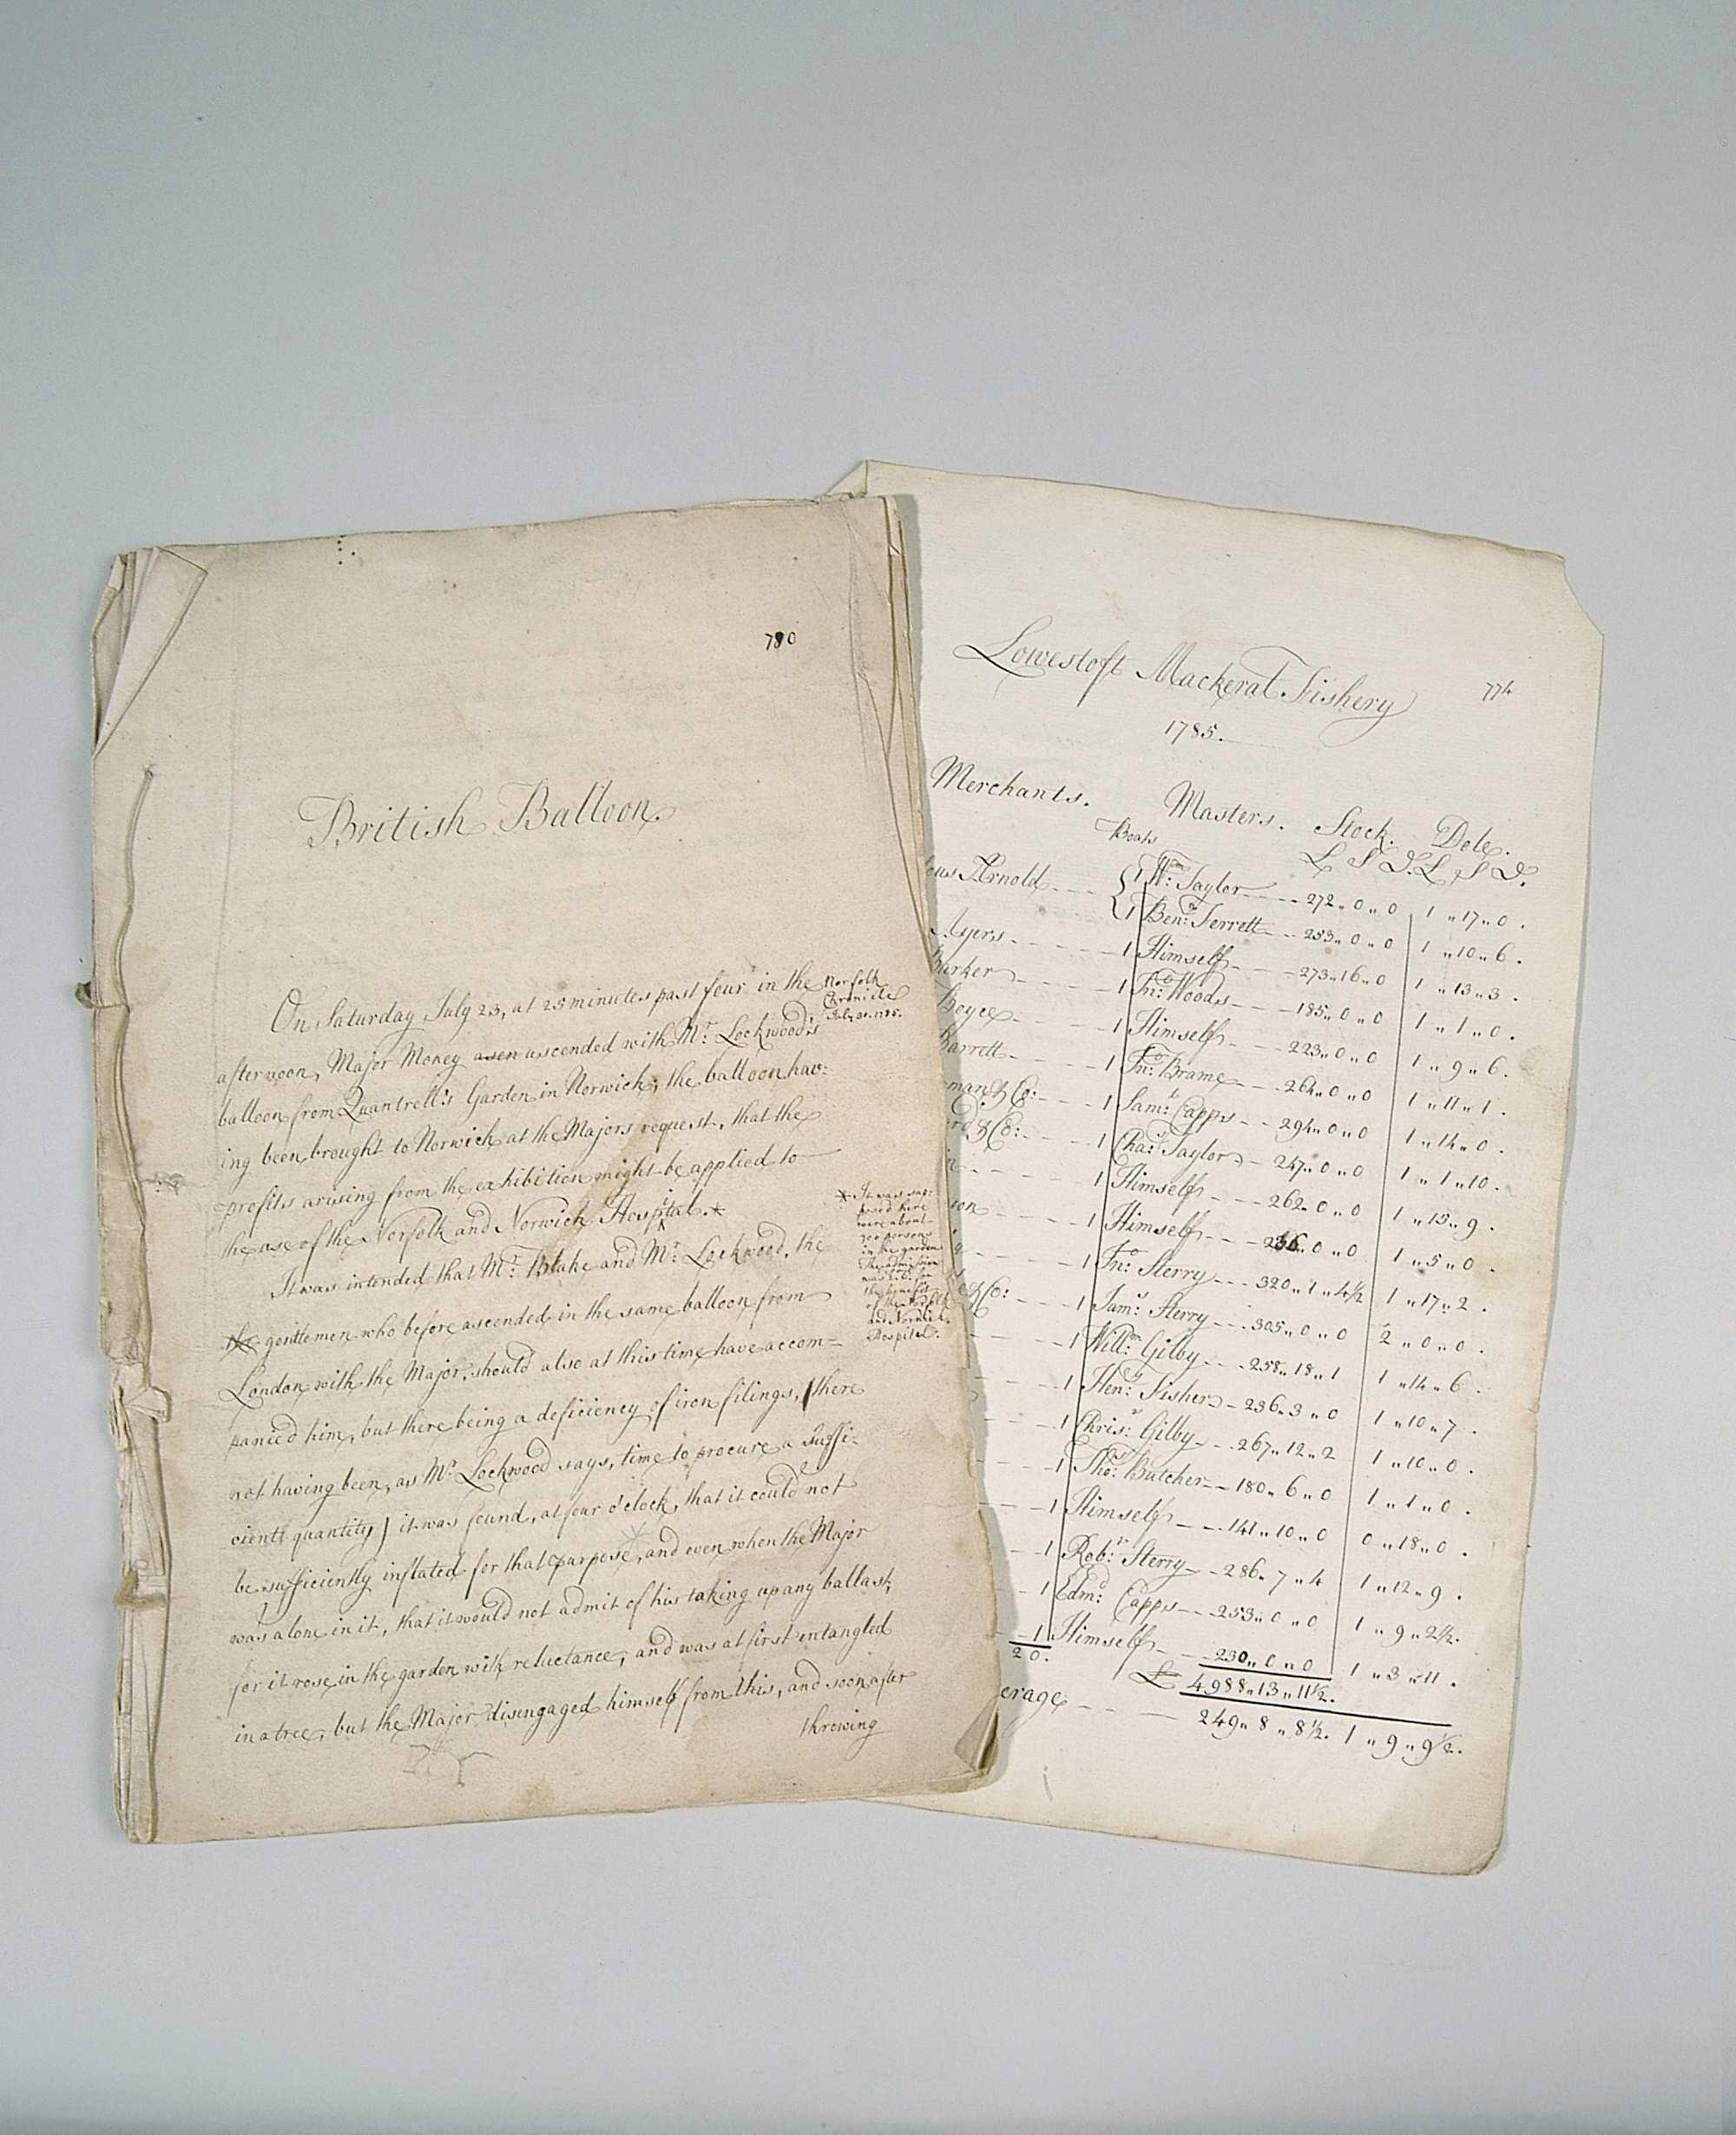 780
British Balloon.
On Saturday July 23, at 25 minutes past four in the
afternoon, Major Money asen ascended with Mr. Lockwood's
balloon from Quantrell's Garden in Norwich; the balloon hav:
ing been brought to Norwich at the Majors request, that the
profits arising from the exhibition might be applied to
the use of the Norfolk and Norwich Hospital.*
It was intended that Mr. Blake and Mr. Lockwood, the
gentlemen who before ascended in the same balloon from
London with the Major, should also at this time have accom-
panied him, but there being a deficiency of iron filings, (there
not having been, as Mr. Lockwood says, time to procure a suffi:
cient quantity) it was found, at four o'clock, that it could not
be sufficiently inflated for that purpose, and even when the Major
was alone in it, that it would not admit of his taking up any ballast,
for it rose in the garden with reluctance, and was at first entangled
in a tree, but the Major disengaged himself from this, and soon after
throwing
Norfolk
Chronicle
July 30. 1785.
* It was sup:
posed there
were about
persons
in the garden
The admission
was for
the benefit
of the Norfolk
and Norwich
Hospital.
774
Lowestoft Mackeral Fishery
1785.
Merchants. Masters. Stock. Dole.
Boats L S D. L S D.
Arnold 1 Wm: Taylor 272 " 0 " 0 1 " 17 " 0.
1 Benn: Ferrett 253 " 0 " 0 1 " 10 " 6.
Ayers 1 Himself 273 " 16 " 0 1 " 13 " 3.
Barker 1 Jno: Woods 185 " 0 " 0 1 " 1 " 0.
Boyce 1 Himself 223 " 0 " 0 1 " 9 " 6.
Barrett 1 Jno: Brame 264 " 0 " 0 1 " 11 " 1.
man & Co: 1 Saml: Capps 294 " 0 " 0 1 " 14 " 0.
rd & Co: 1 Chas: Taylor 247 " 0 " 0 1 " 1 " 10.
1 Himself 262 " 0 " 0 1 " 15 " 9.
son 1 Himself 236 " 0 " 0 1 " 5 " 0.
1 Jno: Sterry 320 " 1 " 4½ 1 " 17 " 2.
& Co: 1 Jams: Sterry 305 " 0 " 0 2 " 0 " 0.
1 Willm: Gilby 258 " 18 " 1 1 " 14 " 6.
1 Heny: Fisher 236 " 3 " 0 1 " 10 " 7.
1 Chrisr: Gilby 267 " 12 " 2 1 " 10 " 0.
1 Thos: Butcher 180 " 6 " 0 1 " 1 " 0.
1 Himself 141 " 10 " 0 0 " 18 " 0.
1 Robt: Sterry 286 " 7 " 4 1 " 12 " 9.
1 Edmd: Capps 253 " 0 " 0 1 " 9 " 2½.
1 Himself 230 " 0 " 0 1 " 3 " 11.
20. £ 4988 " 13 " 11½.
erage 249 " 8 " 8½. 1 " 9 " 9½.